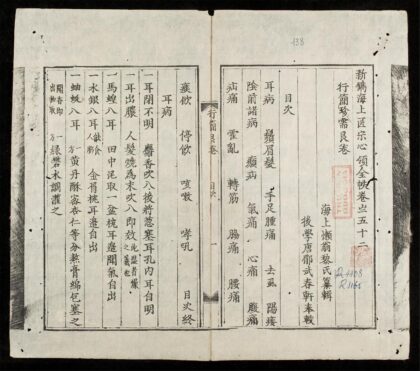 138
新鐫海上医宗心領全帙卷之五十二
行簡珍需良卷
海上懶翁黎氏纂輯
後學唐郿武春軒奉較
目次
耳病 鬚眉髮 手足腫痛 去虱 陽痿
陰前諸病 癲病 氣痛 心痛 腹痛
疝痛 霍亂 轉筋 腸痛 腰痛
R.1108
R.1165
行簡良卷 目次 一
痰飲 停飲 咳嗽 哮吼 目次終
耳病
一耳閉不明 麝香吹八後将葱塞耳孔内耳自明
一耳出膿 人髮燒為末吹八即效
一馬蝗八耳 田中泥取一盆枕耳邊聞氣自出
一水銀八耳 金省枕耳邊自出
一蚰蚾八耳 黄丹酥蜜杏仁等分熬膏綿包塞之
聞香即出
一方 緑礬水調灌之